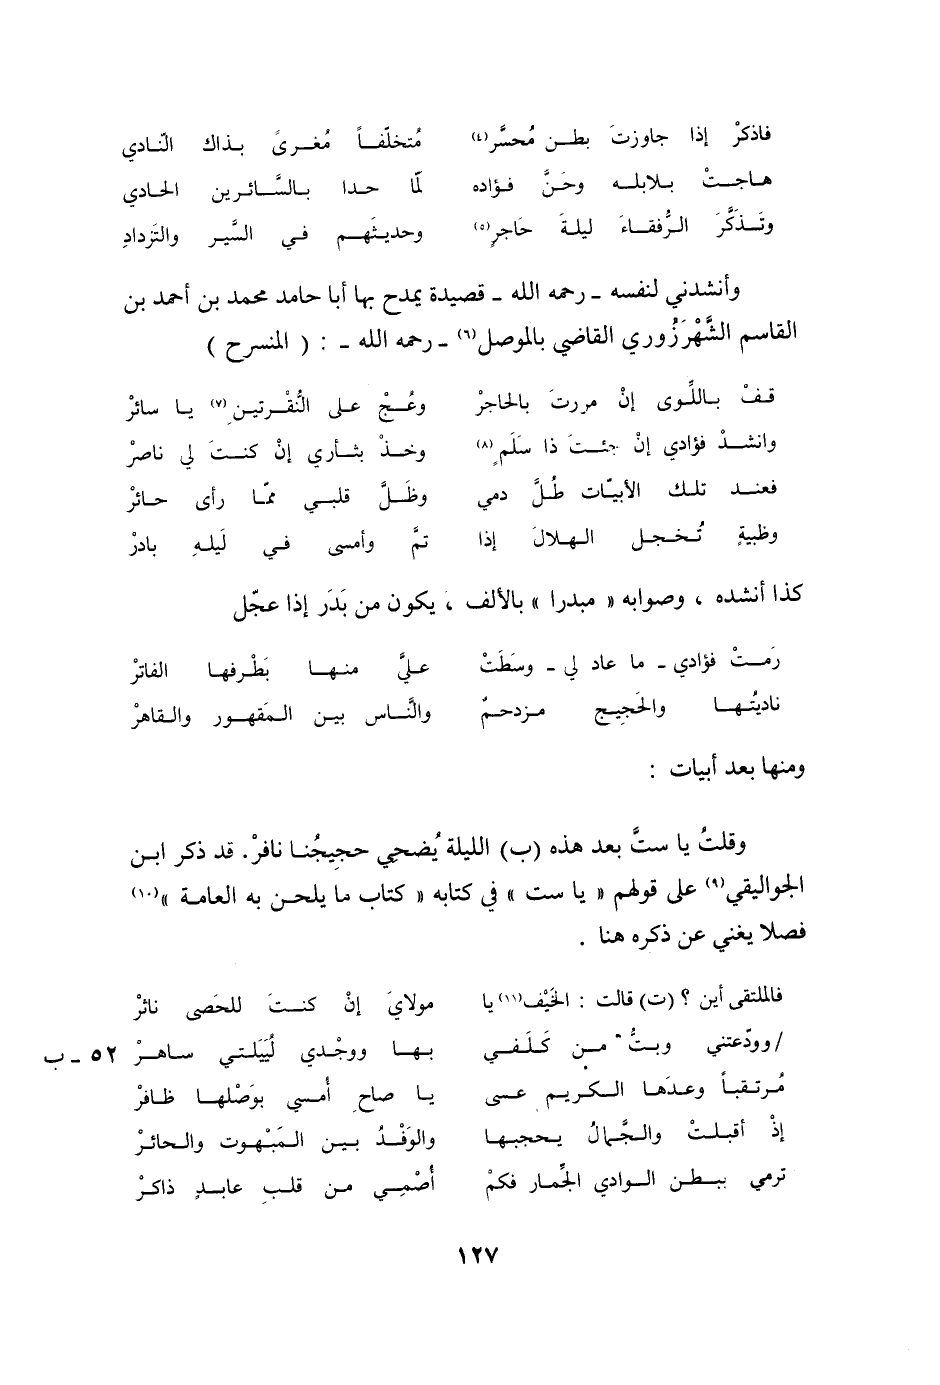 فاذكرْ إذا جاوزتَ بطـن مُحسَّر(٤) مُتخلّفـاً مُغـرىً بـذاك النّادي
هاجـتْ بـلابلـه وحَنَّ فـؤاده لمّا حـدا بـالسَّـائـرين الحـادي
وتَـذكَّرَ الـرُّفقـاءَ ليلـةَ حَاجرٍ(٥) وحديثَهـم فـي السَّيـر والتَّردادِ
وأنشدني لنفسه ـ رحمه الله ـ قصيدة يمدح بها أبا حامد محمد بن أحمد بن
القاسم الشَّهْرَزُوري القاضي بالموصل(٦) ـ رحمه الله ـ : ( المنسرح )
قـفْ بـاللِّوى إنْ مررتَ بالحاجرْ وعُـجْ علـى النُّقْـرتيـنِ(٧) يـا سائرْ
وانشـدْ فؤادي إنْ جئـتَ ذا سَلَمٍ(٨) وخـذْ بثـأري إنْ كنـتَ لي ناصرْ
فعنـد تلـك الأبيّات طُلَّ دمي وظَـلَّ قلبـي ممّا رأى حـائرْ
وظبيةٍ تُـخـجـل الـهـلالَ إذا تـمَّ وأمسى فـي لَيلـهِ بادرْ
كذا أنشده ، وصوابه « مبدرا » بالألف ، يكون من بَدَر إذا عجّل
رَمـتْ فؤادي ـ ما عاد لي ـ وسَطَتْ علـيَّ منهـا بَطْـرفهـا الفاترْ
ناديتُـهـا والحَجيـج مـزدحـمٌ والنَّـاس بيـن الـمَقهـور والـقاهرْ
ومنها بعد أبيات :
وقلتُ يا ستَّ بعد هذه (ب) الليلة يُضحي حجيجُنا نافرْ. قد ذكر ابـن
الجواليقي(٩) على قولهم « يا ست » في كتابه « كتاب ما يلحـن به العامـة »(١٠)
فصلا يغني عن ذكره هنا .
فالملتقى أين ؟ (ت) قالت : الخَيْف(١١) يا مولايَ إنْ كنـتَ للحَصى ناثرْ
/ وودّعتني وبـتُّ مـن كَـلَـفـي بـهـا ووجْـدي لُيَيْلـتي ساهـرْ ٥٢ ـ ب
مُرتـقبـاً وعـدَهـا الـكريـم عـسى يـا صاحِ أمـسي بوَصْلِهـا ظافرْ
إذْ أقبلـتْ والـجَّمـالُ يـحجبهـا والوَفْـدُ بيـن الـمَبْهـوت والـحائرْ
ترمي ببطـن الـوادي الجِّمـار فكمْ أُصْمِـي مـن قلـبِ عابـدٍ ذاكـرْ
١٢٧